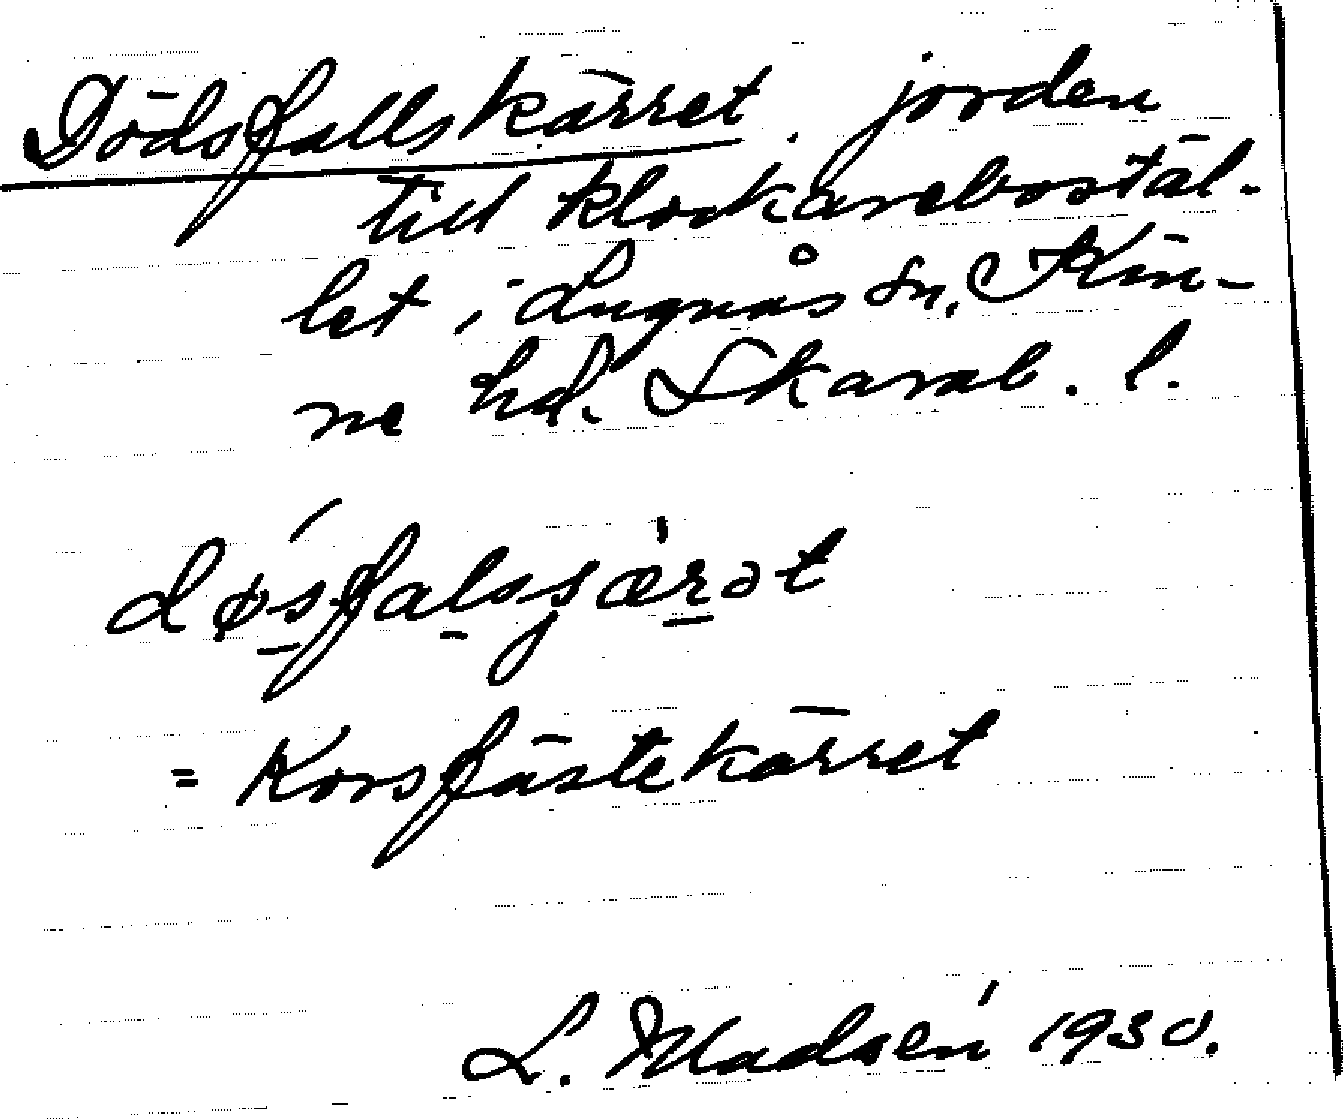 Dödsfallskärret, jorden
till klockarebostäl-
let i Lugnås sn, Kin-
ne hd. Skarab. l.
døsfalsjærət
= Korsfästekärret
L. Madsén 1930.